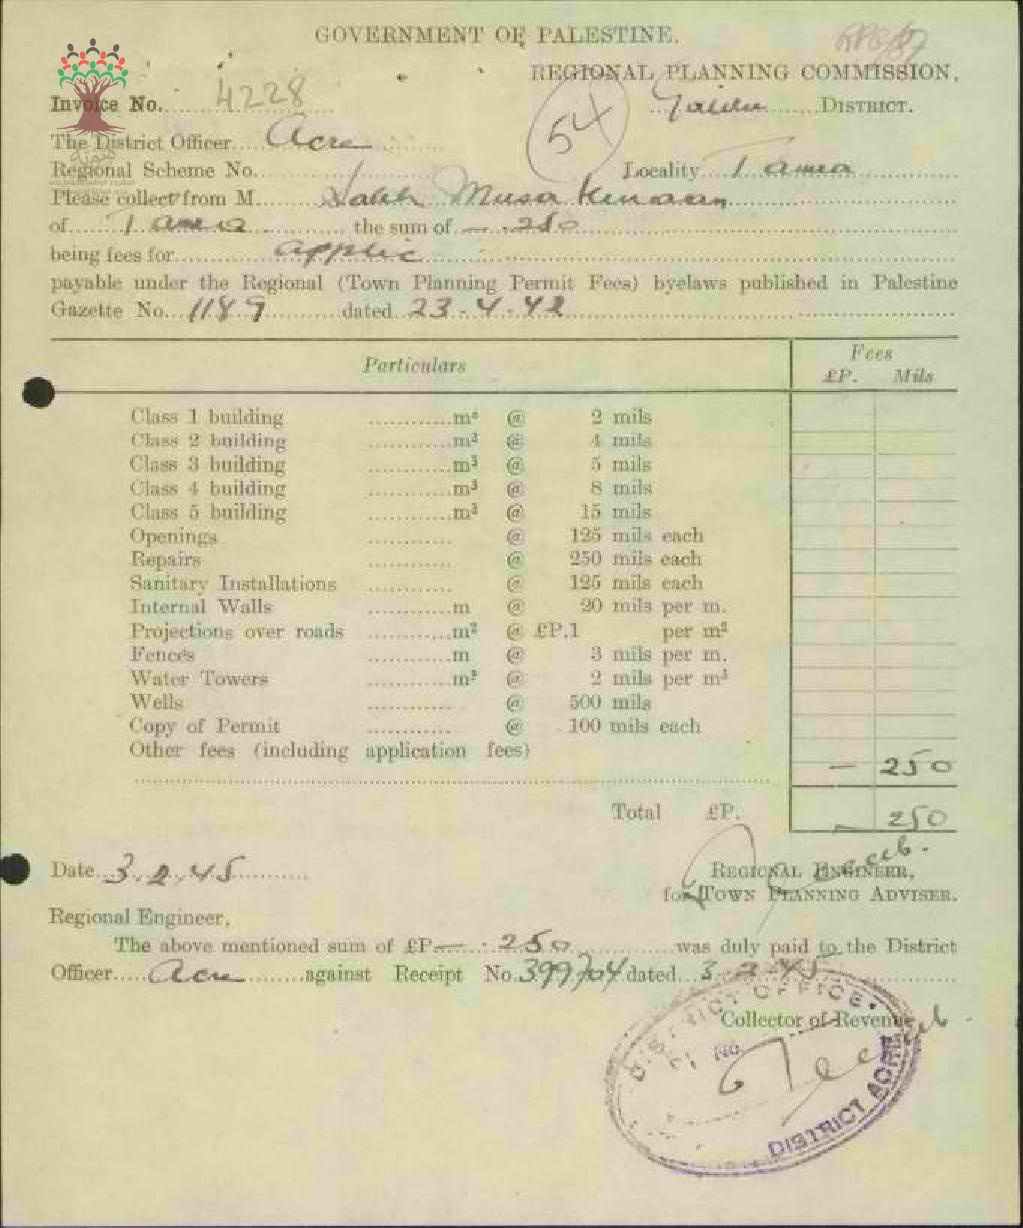 GOVERNMENT OF PALESTINE.
REGIONAL PLANNING COMMISSION,
Invoice No. 4228 54 DISTRICT.
The District Officer Acre
Regional Scheme No. Locality Tamra
Please collect from M. Saleh Musa Kenaan
of Tamra the sum of — .250
being fees for applic
payable under the Regional (Town Planning Permit Fees) byelaws published in Palestine
Gazette No. 1189 dated 23.4.42
Particulars Fees
£P. Mils
Class 1 building ............m³ @ 2 mils
Class 2 building ............m³ @ 4 mils
Class 3 building ............m³ @ 5 mils
Class 4 building ............m³ @ 8 mils
Class 5 building ............m³ @ 15 mils
Openings ............ @ 125 mils each
Repairs ............ @ 250 mils each
Sanitary Installations ............ @ 125 mils each
Internal Walls ............m @ 20 mils per m.
Projections over roads ............m² @ £P.1 per m²
Fences ............m @ 3 mils per m.
Water Towers ............m³ @ 2 mils per m³
Wells ............ @ 500 mils
Copy of Permit ............ @ 100 mils each
Other fees (including application fees)
— 250
Total £P. — 250
Date 3.2.45
REGIONAL ENGINEER,
for TOWN PLANNING ADVISER.
Regional Engineer,
The above mentioned sum of £P — .250 was duly paid to the District
Officer Acre against Receipt No. 399704 dated 3.2.45
Collector of Revenue
DISTRICT OFFICE
No.
DISTRICT ACRE